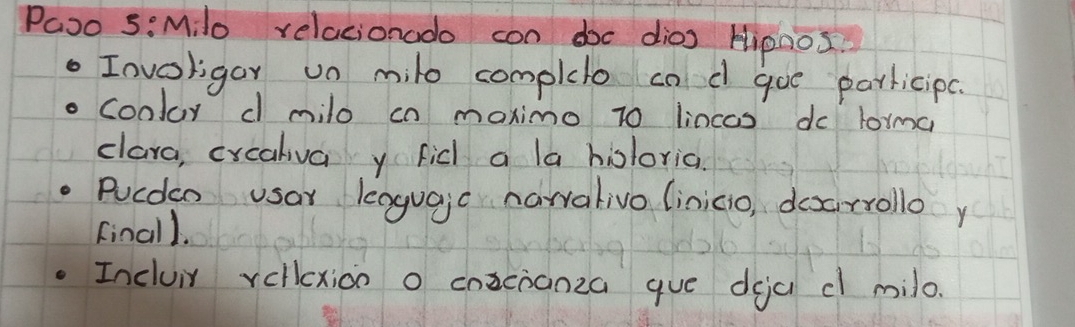 Paso 5: Mito relacionado con doc dios Hipnos.
• Investigar un mito completo en el que participe.
• Contar el mito en maximo 10 lineas de forma
clara, creativa y fiel a la historia.
• Pueden usar lenguaje narrativo (inicio, desarrollo y
final).
• Incluir reflexion o enseñanza que deja el mito.